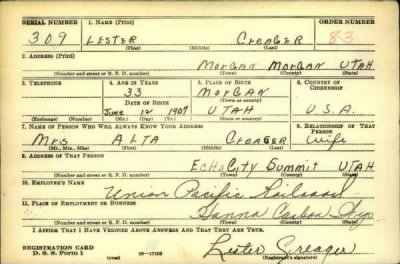 SERIAL NUMBER 1. NAME (Print) ORDER NUMBER
309 LESTER CREAGER 83
(First) (Middle) (Last)
2. ADDRESS (Print)
MORGAN MORGAN UTAH
(Number and street or R. F. D. number) (Town) (County) (State)
3. TELEPHONE 4. AGE IN YEARS 5. PLACE OF BIRTH 6. COUNTRY OF CITIZENSHIP
33 MORGAN
DATE OF BIRTH (Town or county)
June 12 1907 UTAH U.S.A.
(Exchange) (Number) (Mo.) (Day) (Yr.) (State or country)
7. NAME OF PERSON WHO WILL ALWAYS KNOW YOUR ADDRESS 8. RELATIONSHIP OF THAT PERSON
Mrs ALTA CREAGER Wife
(Mr., Mrs., Miss) (First) (Middle) (Last)
9. ADDRESS OF THAT PERSON
ECHO City Summit UTAH
(Number and street or R. F. D. number) (Town) (County) (State)
10. EMPLOYER'S NAME
Union Pacific Railroad
11. PLACE OF EMPLOYMENT OR BUSINESS
Hanna Carbon Wyo
(Number and street or R. F. D. number) (Town) (County) (State)
I AFFIRM THAT I HAVE VERIFIED ABOVE ANSWERS AND THAT THEY ARE TRUE.
REGISTRATION CARD
D. S. S. Form 1 (over) 16-17105 Lester Creager
(Registrant's signature)